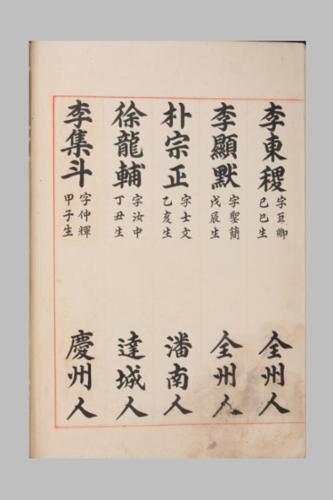 李東稷 字王卿 己巳生 全州人
李顯默 字聖簡 戊辰生 全州人
朴宗正 字士文 乙亥生 潘南人
徐龍輔 字汝中 丁丑生 達城人
李集斗 字仲輝 甲子生 慶州人